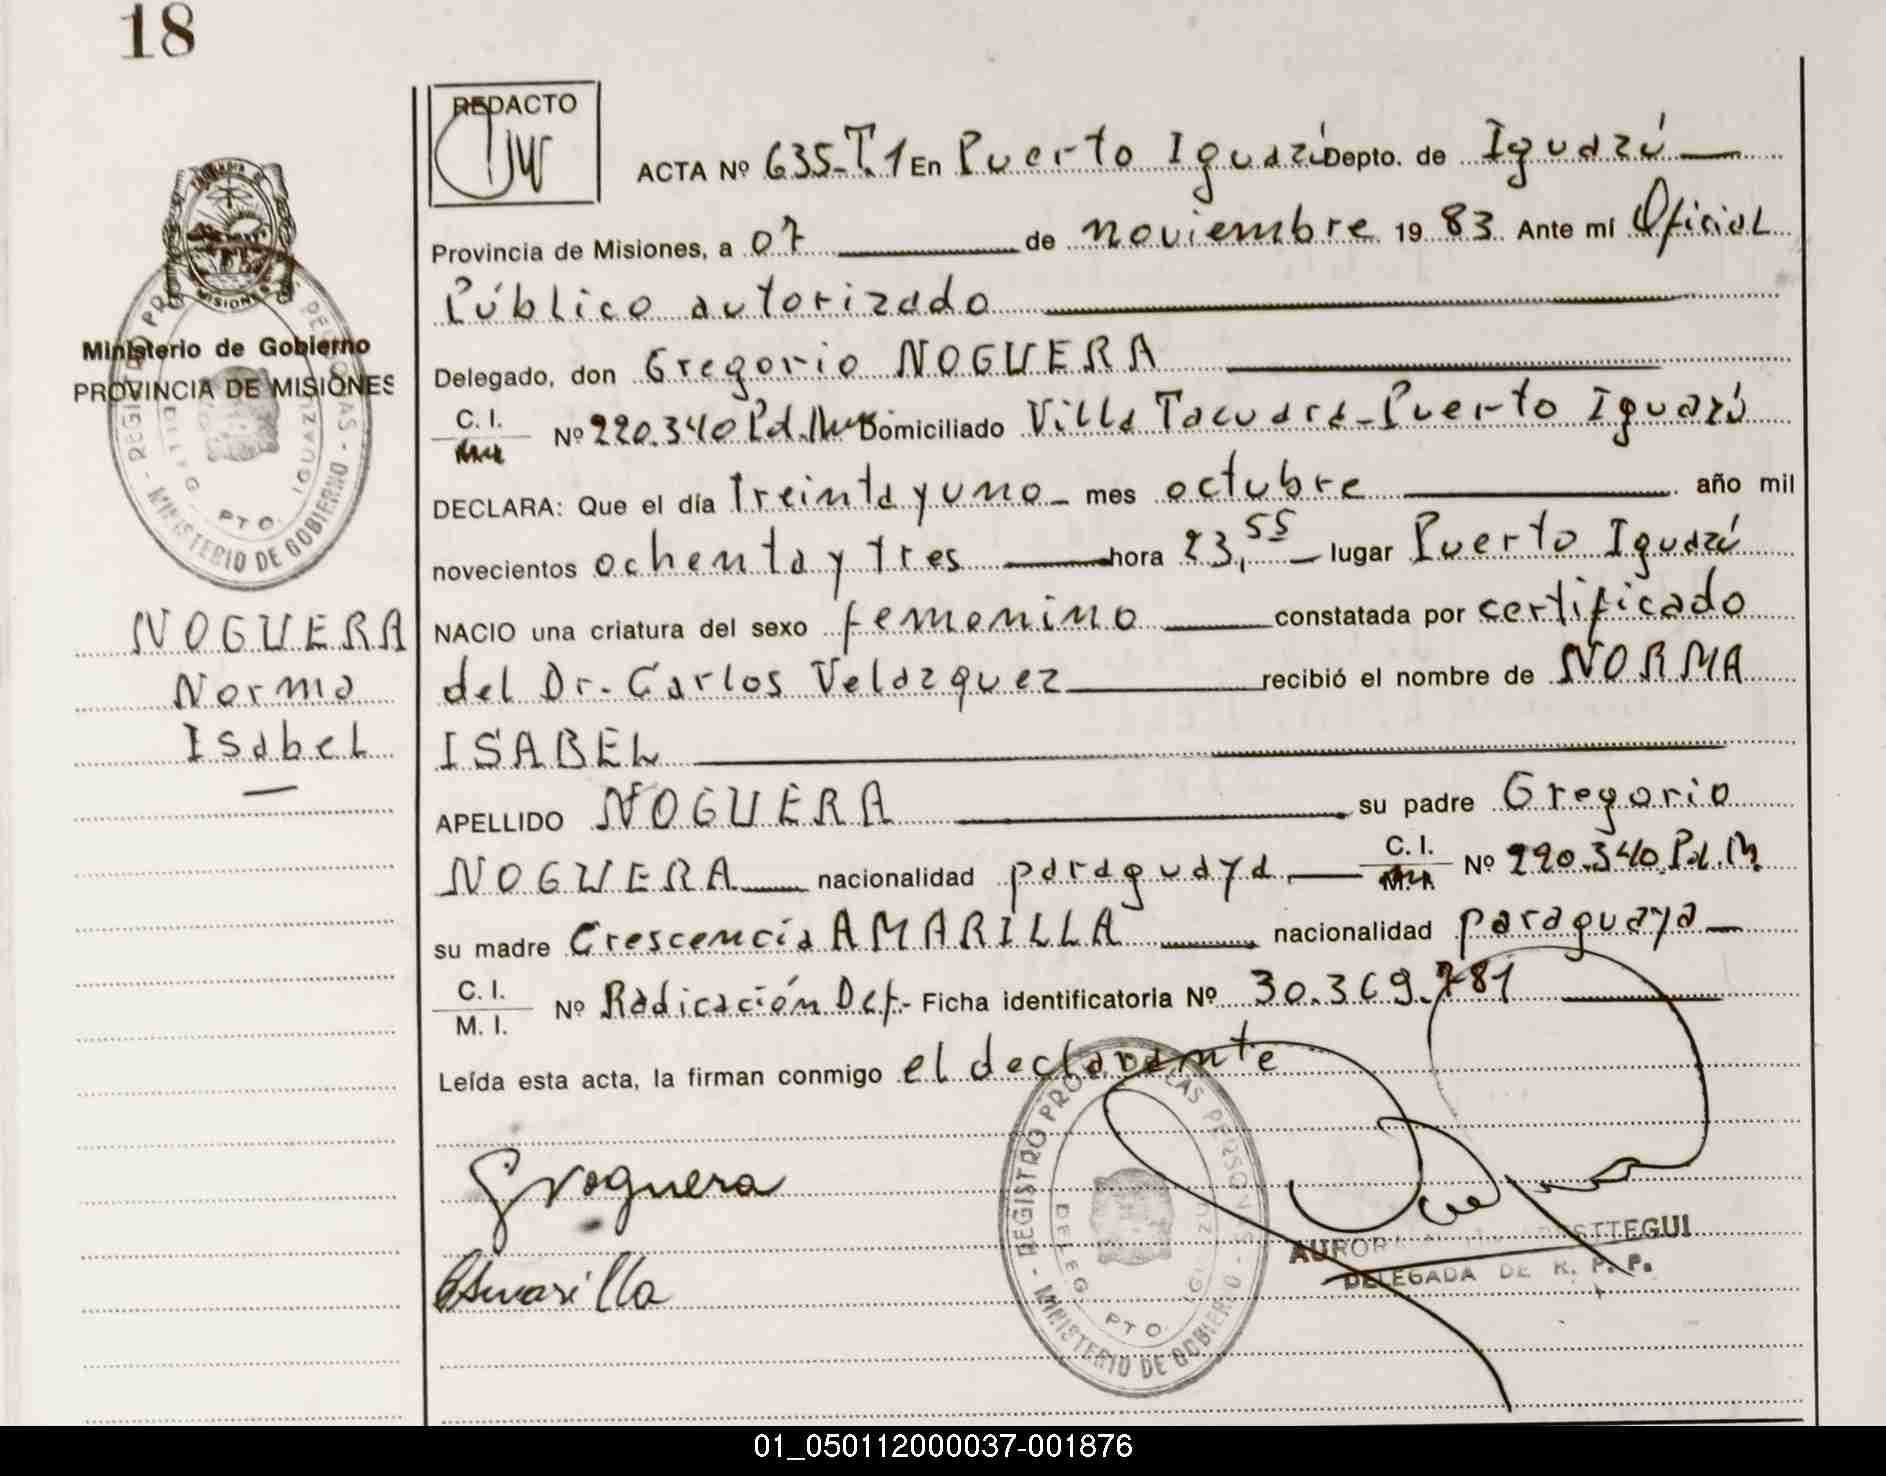 18
REDACTO
ACTA Nº 635-T.1 En Puerto Iguazú Depto. de Iguazú
Provincia de Misiones, a 07 de noviembre 19 83 Ante mí Oficial
Público autorizado
Delegado, don Gregorio NOGUERA
C. I. Nº 220.340 Pd. Domiciliado Villa Tacuara-Puerto Iguazú
DECLARA: Que el día treinta y uno mes octubre año mil
novecientos ochenta y tres hora 23,55 lugar Puerto Iguazú
NACIO una criatura del sexo femenino constatada por certificado
del Dr. Carlos Velazquez recibió el nombre de NORMA
ISABEL
APELLIDO NOGUERA su padre Gregorio
NOGUERA nacionalidad paraguaya C. I. Nº 220.340.Pd.M.
su madre Crescencia AMARILLA nacionalidad paraguaya
C. I.
M. I.
Nº Radicación Def.- Ficha identificatoria Nº 30.369.781
Leída esta acta, la firman conmigo el declarante
GNoguera
CAmarilla
AURORA
DELEGADA DE R. P. P.
REGISTRO PROV. DE LAS PERSONAS - MINISTERIO DE GOBIERNO -
DELEG. PTO. IGUAZU
MISIONES
Ministerio de Gobierno
PROVINCIA DE MISIONES
REGISTRO PROV. DE LAS PERSONAS - MINISTERIO DE GOBIERNO -
DELEG. PTO. IGUAZU
NOGUERA
Norma
Isabel
01_050112000037-001876